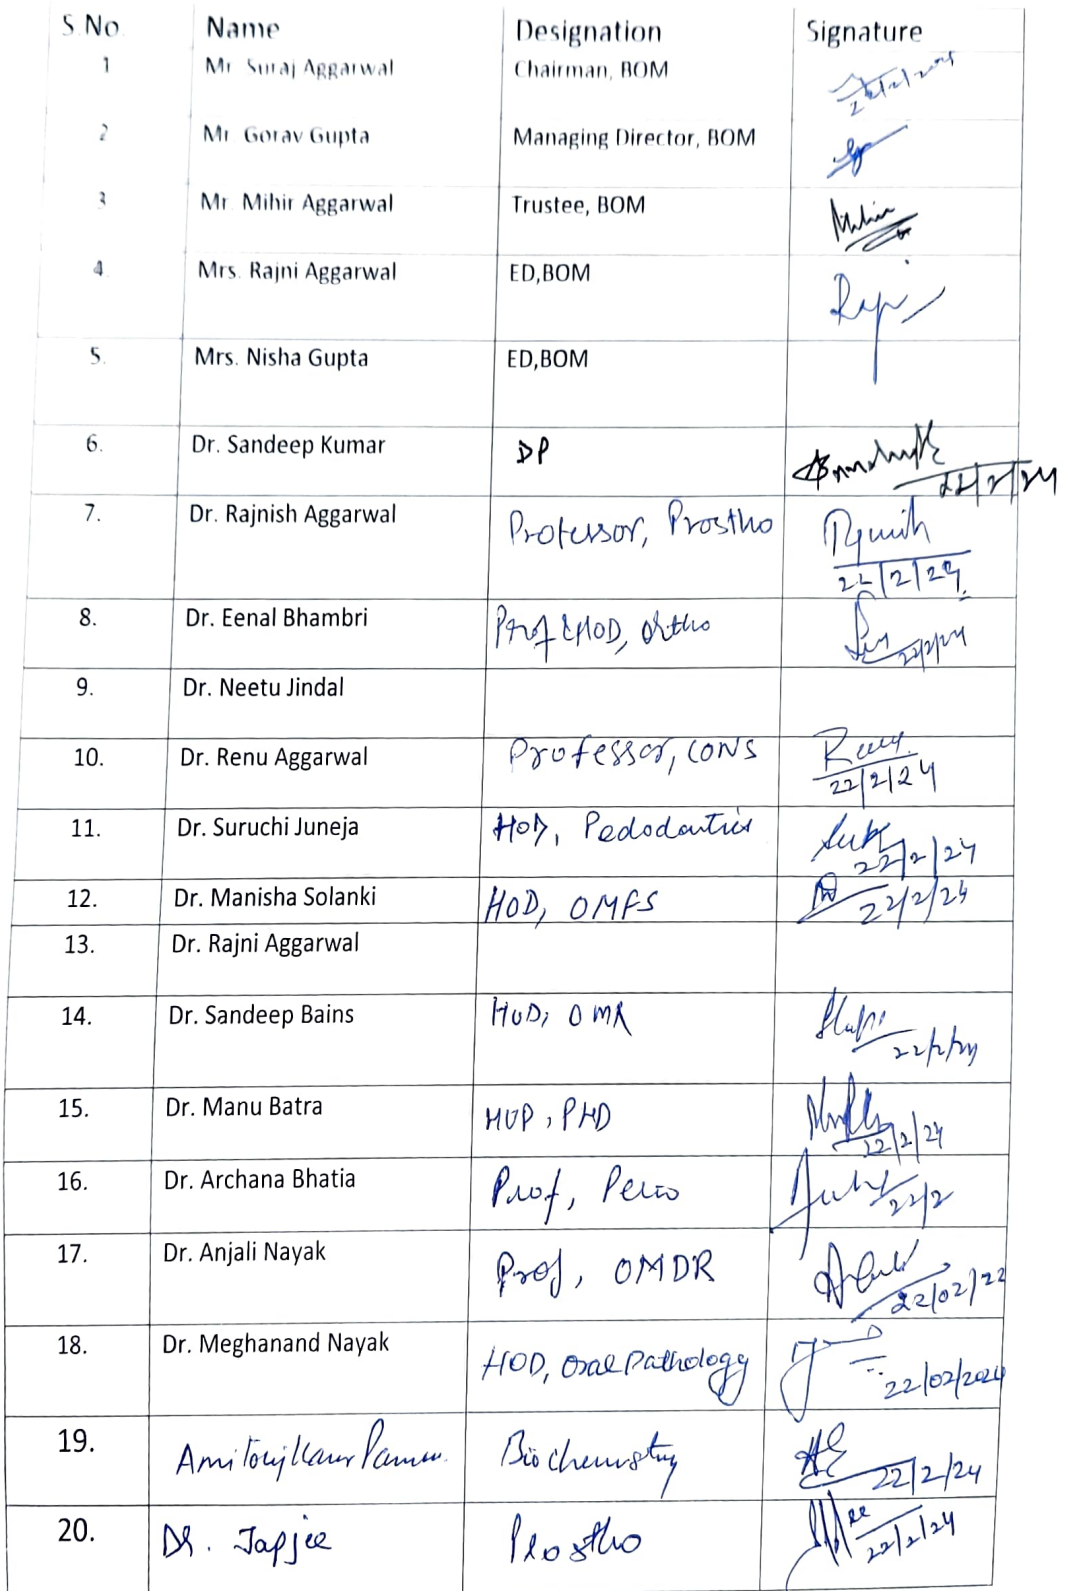 S.No. Name Designation Signature
1 Mr Suraj Aggarwal Chairman, BOM 22/2/2024
2 Mr Gorav Gupta Managing Director, BOM
3 Mr. Mihir Aggarwal Trustee, BOM Mihir
4. Mrs. Rajni Aggarwal ED,BOM Rajni
5. Mrs. Nisha Gupta ED,BOM
6. Dr. Sandeep Kumar DP 22/2/24
7. Dr. Rajnish Aggarwal Professor, Prostho 22/2/24
8. Dr. Eenal Bhambri Prof & HOD, Ortho 22/2/24
9. Dr. Neetu Jindal
10. Dr. Renu Aggarwal Professor, CONS 22/2/24
11. Dr. Suruchi Juneja HOD, Pedodontics 22/2/24
12. Dr. Manisha Solanki HOD, OMFS 22/2/24
13. Dr. Rajni Aggarwal
14. Dr. Sandeep Bains HOD, OMR 22/2/24
15. Dr. Manu Batra HOD, PHD 22/2/24
16. Dr. Archana Bhatia Prof, Perio 22/2
17. Dr. Anjali Nayak Prof, OMDR 22/02/22
18. Dr. Meghanand Nayak HOD, Oral Pathology 22/02/2024
19. Biochemistry 22/2/24
20. Dr. Japjee Prostho 22/2/24